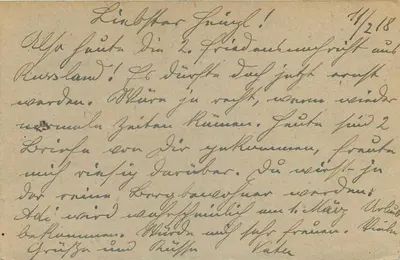 Liebster Heinzl! 11/2 18
Also heute die 2. Friedensnachricht aus
Russland! Es dürfte doch jetzt ernst
werden. Wäre ja recht, wenn wieder
normale Zeiten kämen. Heute sind 2
Briefe von Dir gekommen, freute
mich riesig darüber. Du wirst ja
der reine Bergbewohner werden.
Adi wird wahrscheinlich am 1. März Urlaub
bekommen. Würde mich sehr freuen. Viele
Grüße und Küsse Vater